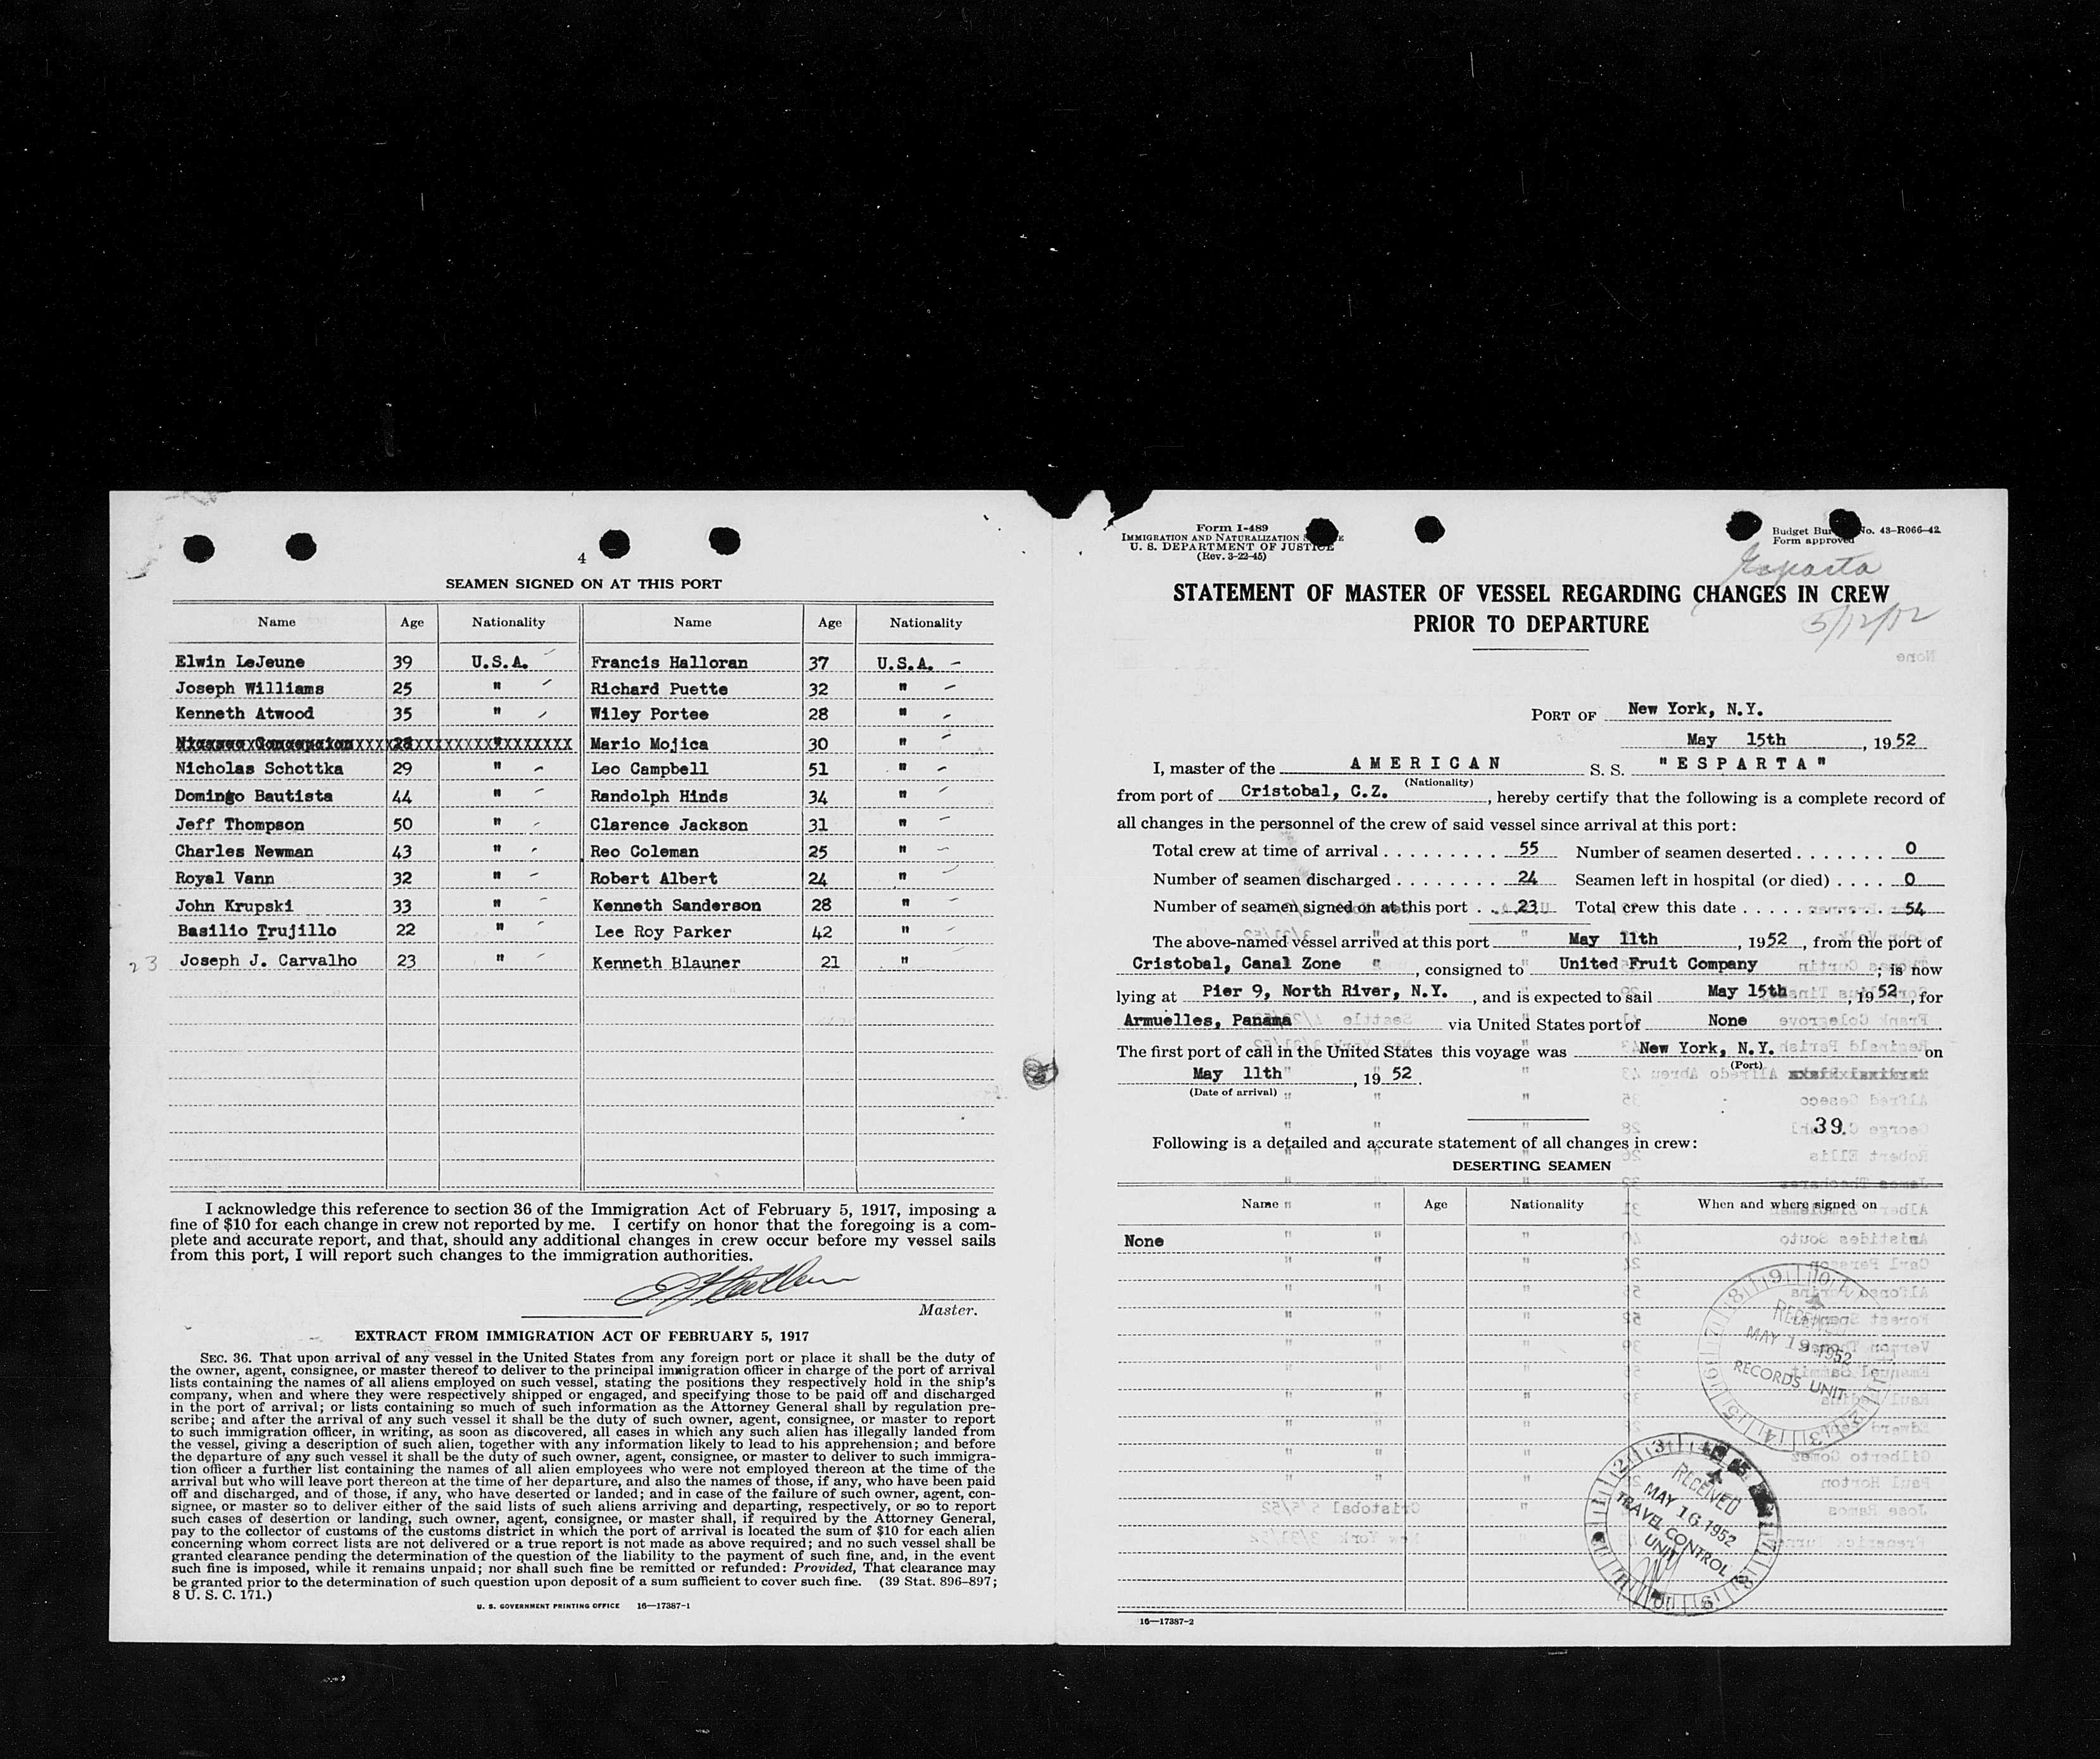 4
SEAMEN SIGNED ON AT THIS PORT
Name Age Nationality Name Age Nationality
Elwin LeJeune 39 U.S.A. Francis Halloran 37 U.S.A.
Joseph Williams 25 " Richard Puette 32 "
Kenneth Atwood 35 " Wiley Portee 28 "
Mario Mojica 30 "
Nicholas Schottka 29 " Leo Campbell 51 "
Domingo Bautista 44 " Randolph Hinds 34 "
Jeff Thompson 50 " Clarence Jackson 31 "
Charles Newman 43 " Reo Coleman 25 "
Royal Vann 32 " Robert Albert 24 "
John Krupski 33 " Kenneth Sanderson 28 "
Basilio Trujillo 22 " Lee Roy Parker 42 "
23 Joseph J. Carvalho 23 " Kenneth Blauner 21 "
I acknowledge this reference to section 36 of the Immigration Act of February 5, 1917, imposing a
fine of $10 for each change in crew not reported by me. I certify on honor that the foregoing is a com-
plete and accurate report, and that, should any additional changes in crew occur before my vessel sails
from this port, I will report such changes to the immigration authorities.
Master.
EXTRACT FROM IMMIGRATION ACT OF FEBRUARY 5, 1917
SEC. 36. That upon arrival of any vessel in the United States from any foreign port or place it shall be the duty of
the owner, agent, consignee, or master thereof to deliver to the principal immigration officer in charge of the port of arrival
lists containing the names of all aliens employed on such vessel, stating the positions they respectively hold in the ship's
company, when and where they were respectively shipped or engaged, and specifying those to be paid off and discharged
in the port of arrival; or lists containing so much of such information as the Attorney General shall by regulation pre-
scribe; and after the arrival of any such vessel it shall be the duty of such owner, agent, consignee, or master to report
to such immigration officer, in writing, as soon as discovered, all cases in which any such alien has illegally landed from
the vessel, giving a description of such alien, together with any information likely to lead to his apprehension; and before
the departure of any such vessel it shall be the duty of such owner, agent, consignee, or master to deliver to such immigra-
tion officer a further list containing the names of all alien employees who were not employed thereon at the time of the
arrival but who will leave port thereon at the time of her departure, and also the names of those, if any, who have been paid
off and discharged, and of those, if any, who have deserted or landed; and in case of the failure of such owner, agent, con-
signee, or master so to deliver either of the said lists of such aliens arriving and departing, respectively, or so to report
such cases of desertion or landing, such owner, agent, consignee, or master shall, if required by the Attorney General,
pay to the collector of customs of the customs district in which the port of arrival is located the sum of $10 for each alien
concerning whom correct lists are not delivered or a true report is not made as above required; and no such vessel shall be
granted clearance pending the determination of the question of the liability to the payment of such fine, and, in the event
such fine is imposed, while it remains unpaid; nor shall such fine be remitted or refunded: Provided, That clearance may
be granted prior to the determination of such question upon deposit of a sum sufficient to cover such fine. (39 Stat. 896–897;
8 U. S. C. 171.)
U. S. GOVERNMENT PRINTING OFFICE 16—17387-1
Form I-489
IMMIGRATION AND NATURALIZATION
U. S. DEPARTMENT OF JUSTICE
(Rev. 3-22-45)
Budget No. 43-R066-42
Form approved
Esparta
STATEMENT OF MASTER OF VESSEL REGARDING CHANGES IN CREW
PRIOR TO DEPARTURE
5/12/52
PORT OF New York, N.Y.
May 15th, 1952
I, master of the AMERICAN S. S. "ESPARTA"
(Nationality)
from port of Cristobal, C.Z., hereby certify that the following is a complete record of
all changes in the personnel of the crew of said vessel since arrival at this port:
Total crew at time of arrival 55 Number of seamen deserted 0
Number of seamen discharged 24 Seamen left in hospital (or died) 0
Number of seamen signed on at this port 23 Total crew this date 54
The above-named vessel arrived at this port May 11th, 1952, from the port of
Cristobal, Canal Zone, consigned to United Fruit Company; is now
lying at Pier 9, North River, N.Y., and is expected to sail May 15th, 1952, for
Armuelles, Panama via United States port of None
The first port of call in the United States this voyage was New York, N.Y. on
(Port)
May 11th, 1952.
(Date of arrival)
39.
Following is a detailed and accurate statement of all changes in crew:
DESERTING SEAMEN
Name Age Nationality When and where signed on
None
RECEIVED
MAY 19 1952
RECORDS UNIT
RECEIVED
MAY 16 1952
TRAVEL CONTROL
UNIT
16—17387-2